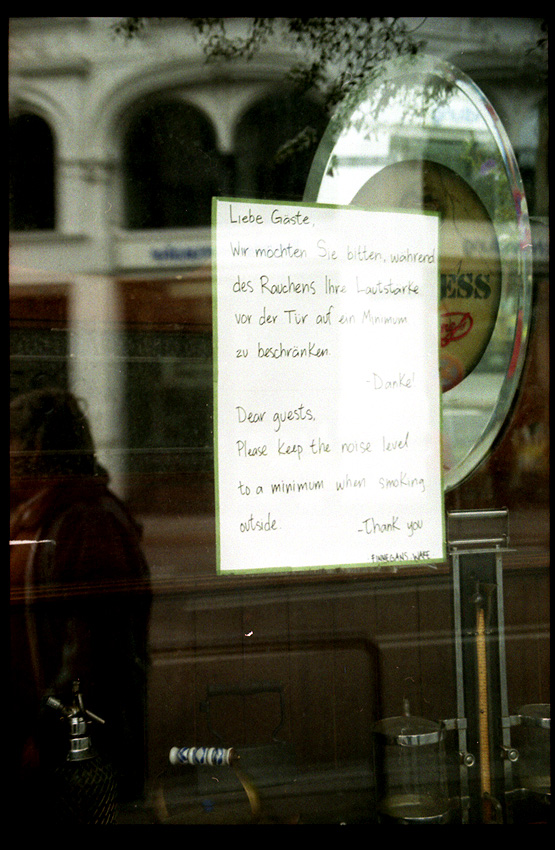 Liebe Gäste,
Wir möchten Sie bitten, während
des Rauchens Ihre Lautstärke
vor der Tür auf ein Minimum
zu beschränken.
-Danke!
Dear guests,
Please keep the noise level
to a minimum when smoking
outside.
-Thank you
FINNEGANS WAKE
ESS